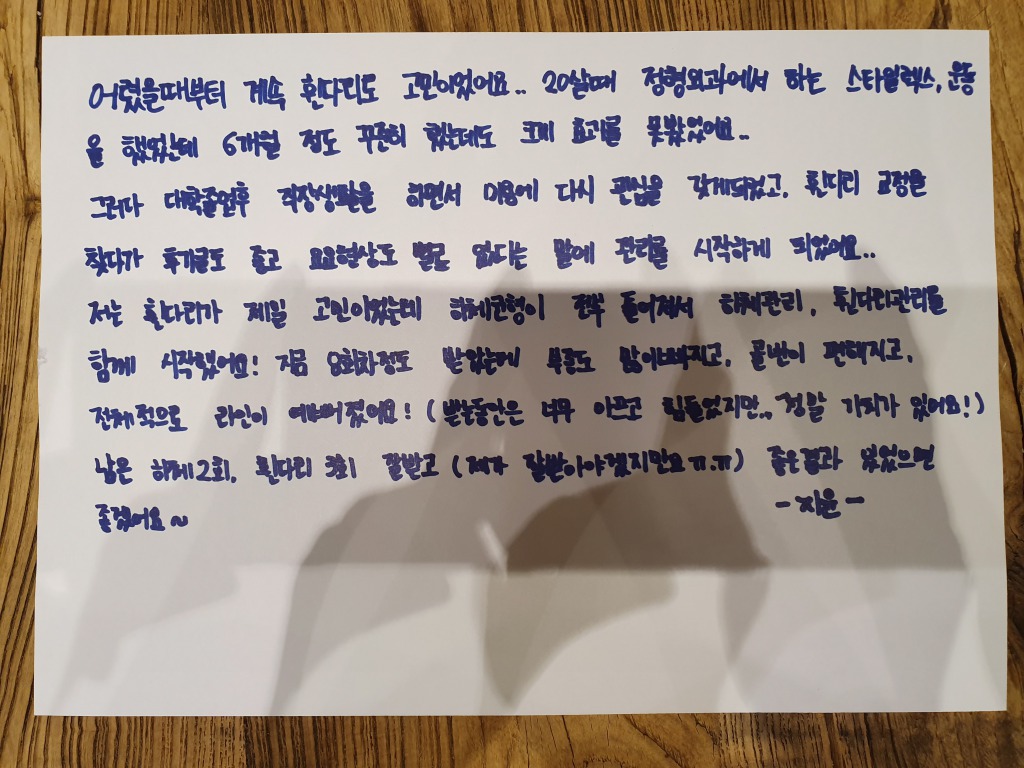 어렸을때부터 계속 휜다리도 고민이었어요.. 20살때 정형외과에서 하는 스타일렉스, 운동
을 했었는데 6개월 정도 꾸준히 했는데도 크게 효과를 못봤었어요..
그러다 대학졸업후 직장생활을 하면서 미용에 다시 관심을 갖게되었고, 휜다리 교정을
찾다가 후기글도 좋고 요요현상도 별로 없다는 말에 관리를 시작하게 되었어요..
저는 휜다리가 제일 고민이었는데 하체균형이 전부 틀어져서 하체관리, 휜다리관리를
함께 시작했어요! 지금 8회차정도 받았는데 부종도 많이빠지고, 골반이 편해지고,
전체적으로 라인이 예뻐졌어요! (받는동안은 너무 아프고 힘들었지만.. 정말 가치가 있어요!)
남은 하체2회, 휜다리 3회 잘받고 (제가 잘받아야겠지만요ㅠ.ㅠ) 좋은결과 있었으면
좋겠어요~ - 지윤 -